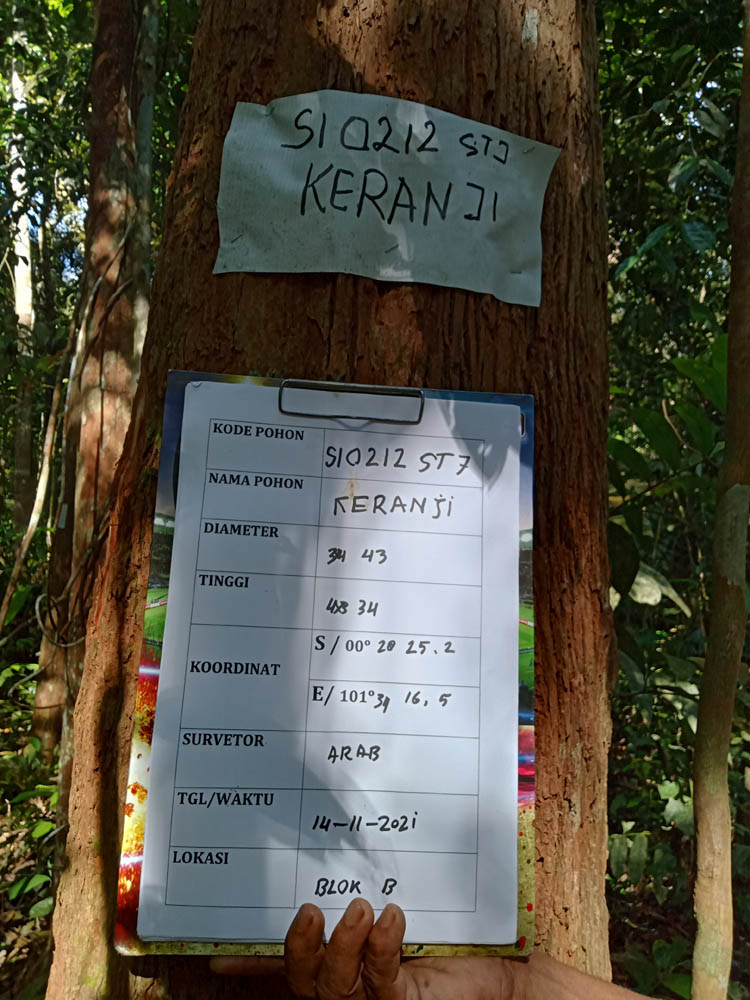 S10212 STJ
KERANJI
KODE POHON S10212 ST7
NAMA POHON KERANJi
DIAMETER 43
TINGGI 34
KOORDINAT
S / 00° 20 25.2
E/ 101° 34 16,5
SURVETOR ARAB
TGL/WAKTU 14-11-2021
LOKASI BLOK B